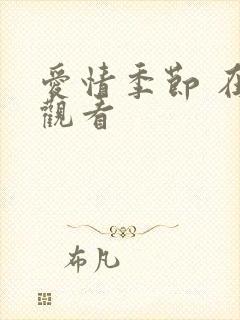 愛情季節 在
觀看
布凡